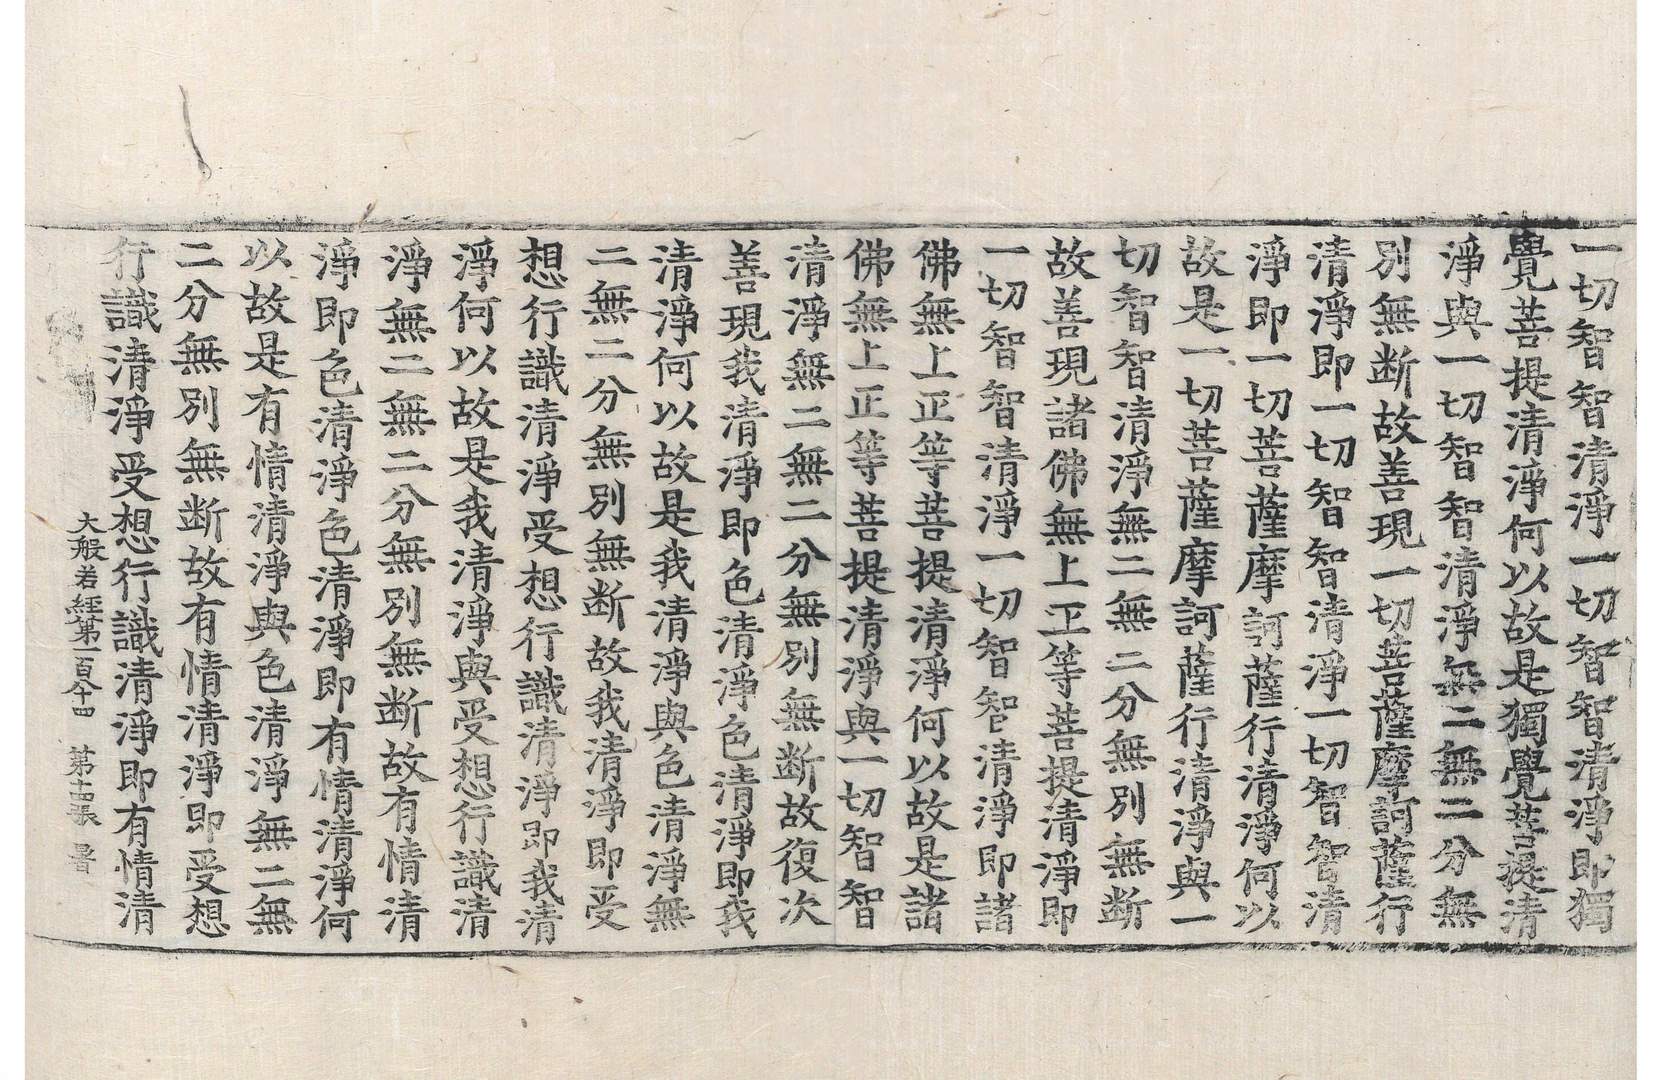 一切智智清淨一切智智清淨即獨
覺菩提清淨何以故是獨覺菩提清
淨與一切智智清淨無二無二分無
別無断故善現一切菩薩摩訶薩行
清淨即一切智智清淨一切智智清
淨即一切菩薩摩訶薩行清淨何以
故是一切菩薩摩訶薩行清淨與一
切智智清淨無二無二分無別無断
故善現諸佛無上正等菩提清淨即
一切智智清淨一切智智清淨即諸
佛無上正等菩提清淨何以故是諸
佛無上正等菩提清淨與一切智智
清淨無二無二分無別無断故復次
善現我清淨即色清淨色清淨即我
清淨何以故是我清淨與色清淨無
二無二分無別無断故我清淨即受
想行識清淨受想行識清淨即我清
淨何以故是我清淨與受想行識清
淨無二無二分無別無断故有情清
淨即色清淨色清淨即有情清淨何
以故是有情清淨與色清淨無二無
二分無別無断故有情清淨即受想
行識清淨受想行識清淨即有情清
大般若経第一百八十四 第十四張